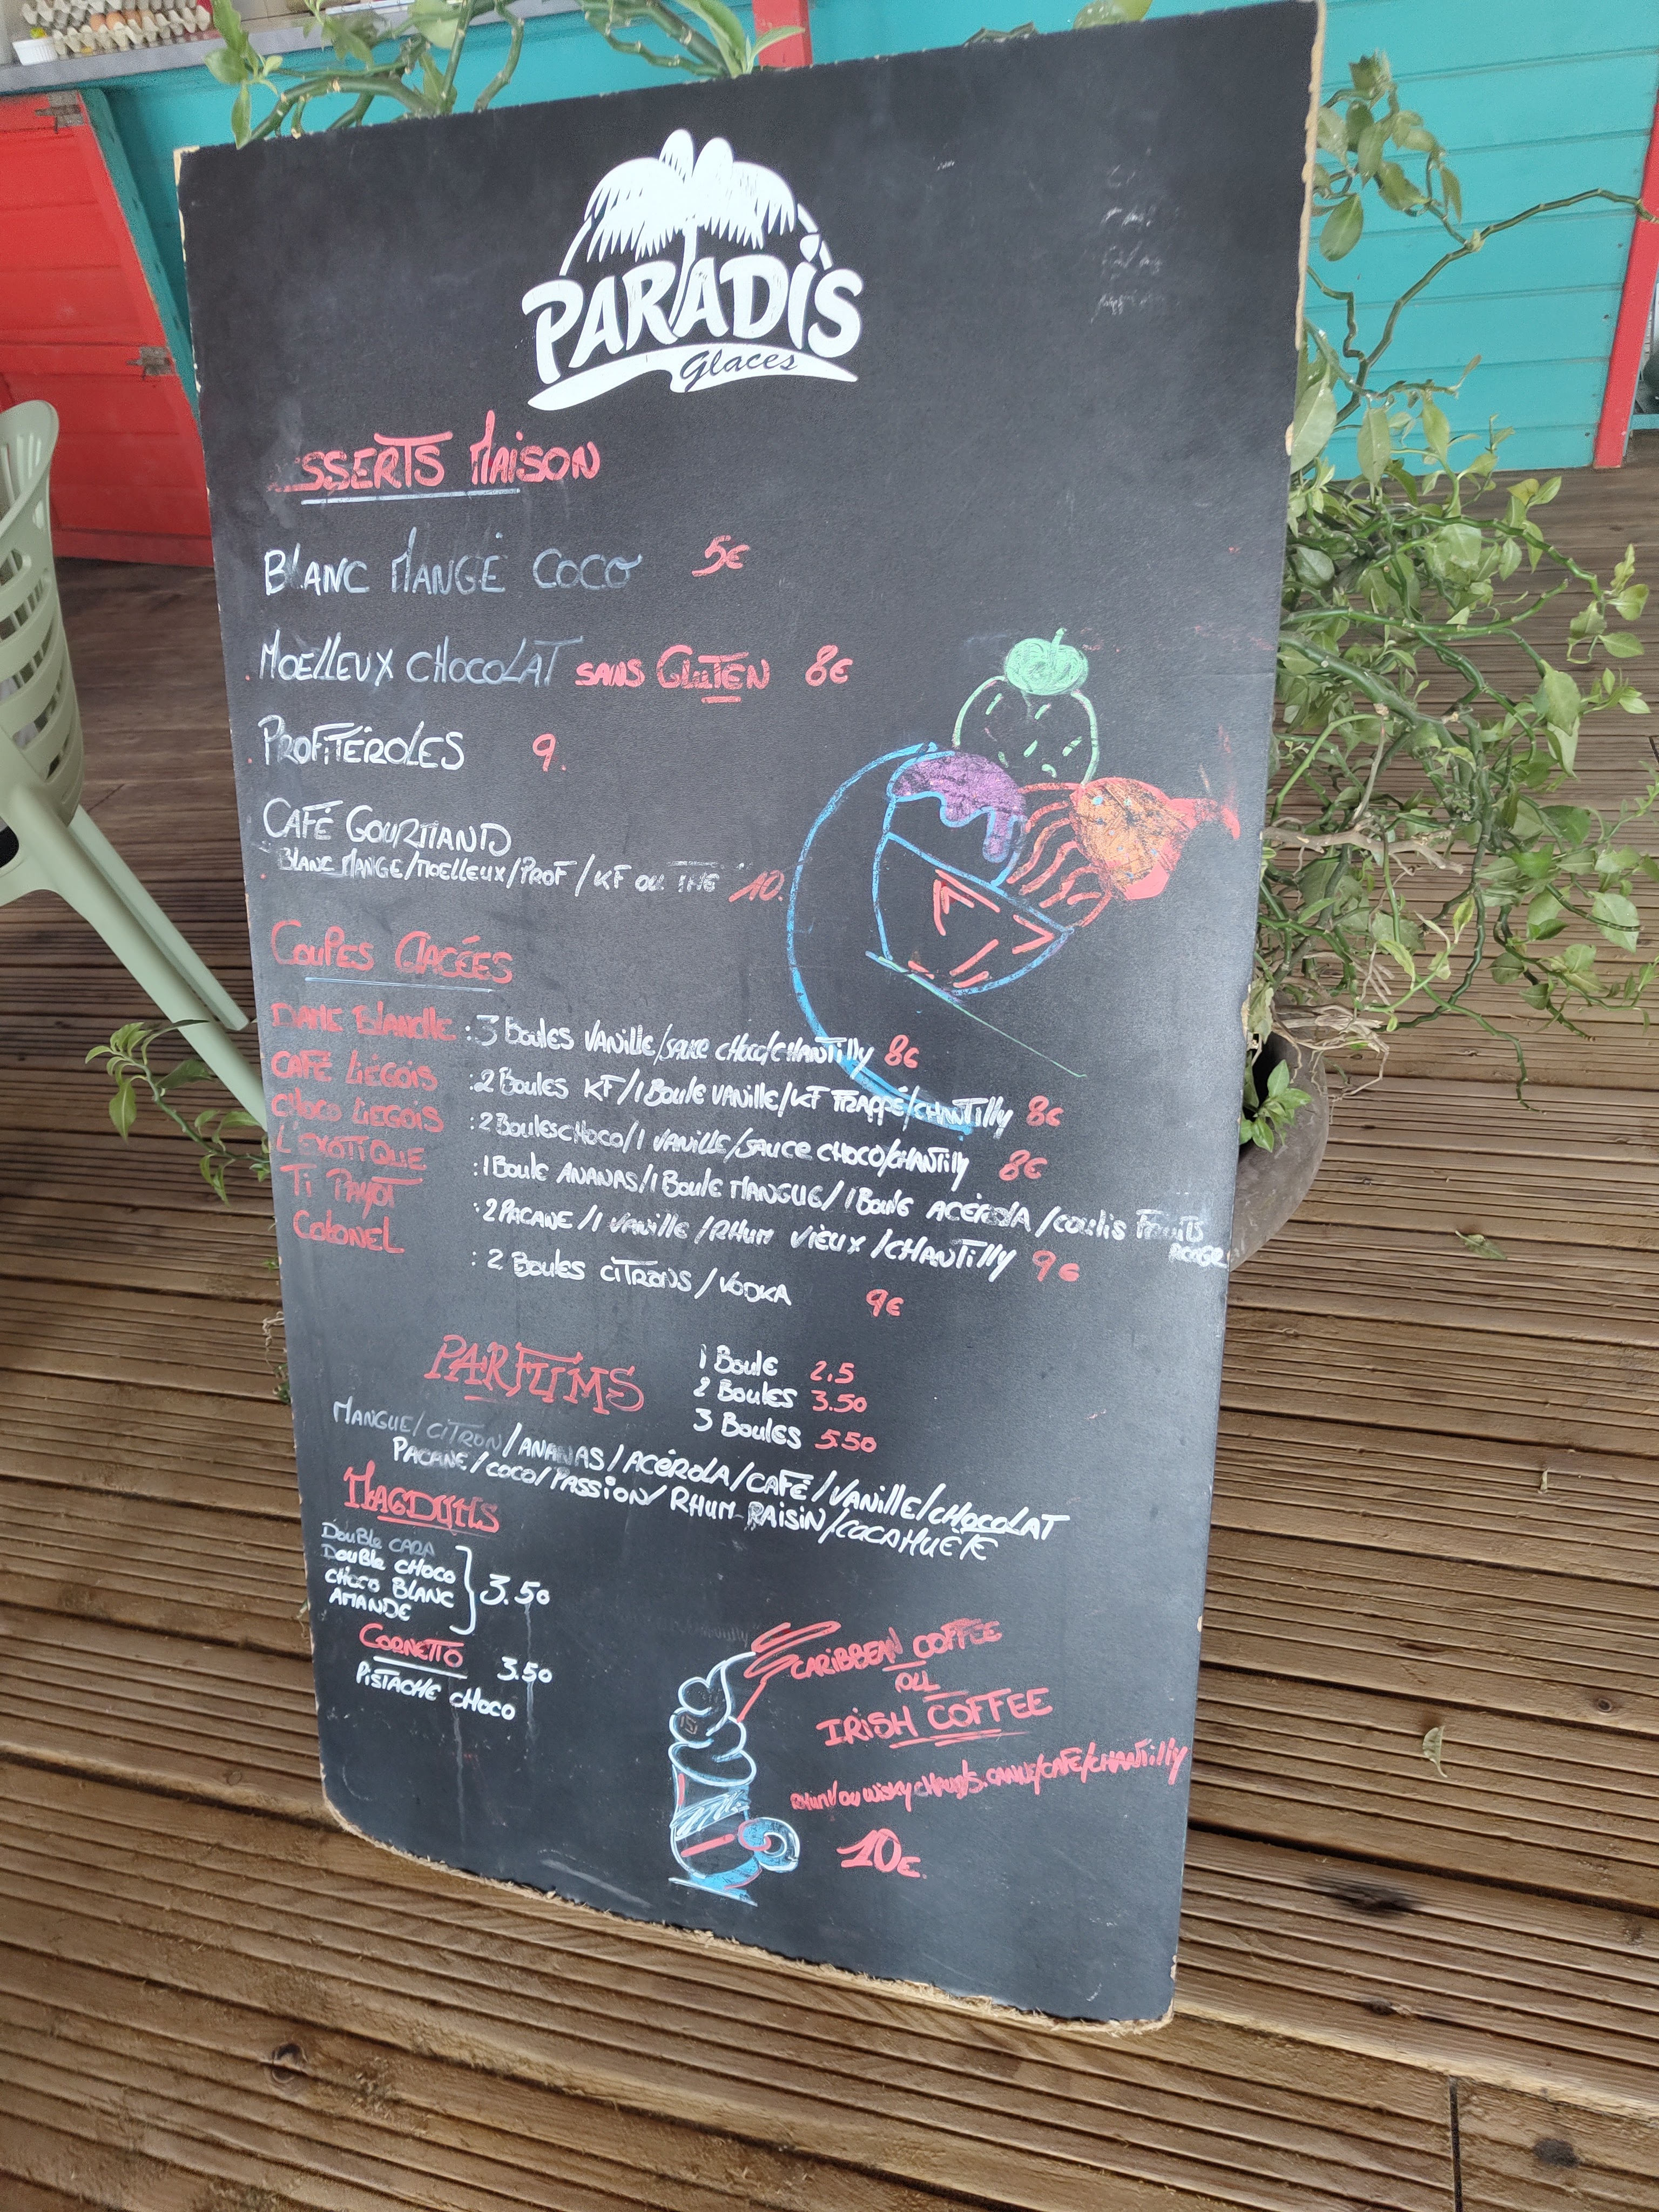 PARADIS
Glaces
SSERTS MAISON
BLANC MANGÉ COCO 5€
MOELLEUX CHOCOLAT SANS GLUTEN 8€
PROFITÉROLES 9.
CAFÉ GOURMAND
BLANC MANGE/MOELLEUX/PROF/KF OU THE 10.
COUPES GLACÉES
DAME BLANCHE : 3 BOULES VANILLE/SAUCE CHOCO/CHANTILLY 8€
CAFÉ LIÉGOIS : 2 BOULES KF/1 BOULE VANILLE/KF FRAPPÉ/CHANTILLY 8€
CHOCO LIEGOIS : 2 BOULES CHOCO/1 VANILLE/SAUCE CHOCO/CHANTILLY 8€
L'EXOTIQUE : 1 BOULE ANANAS/1 BOULE MANGUE/1 BOULE ACÉROLA/COULIS FRUITS
TI PAYOT : 2 PACANE/1 VANILLE/RHUM VIEUX/CHANTILLY 9€
COLONEL : 2 BOULES CITRONS/VODKA 9€
PARFUMS
1 BOULE 2.5
2 BOULES 3.50
3 BOULES 5.50
MANGUE/CITRON/ANANAS/ACÉROLA/CAFÉ/VANILLE/CHOCOLAT
PACANE/COCO/PASSION/RHUM-RAISIN/CACAHUETE
MAGDUMS
DOUBLE CARA
DOUBLE CHOCO
CHOCO BLANC
AMANDE
3.50
CORNETTO 3.50
PISTACHE CHOCO
CARIBBEAN COFFEE
OU
IRISH COFFEE
RHUM/OU WISKY CHAUD/S.CANNE/CAFÉ/CHANTILLY
10€